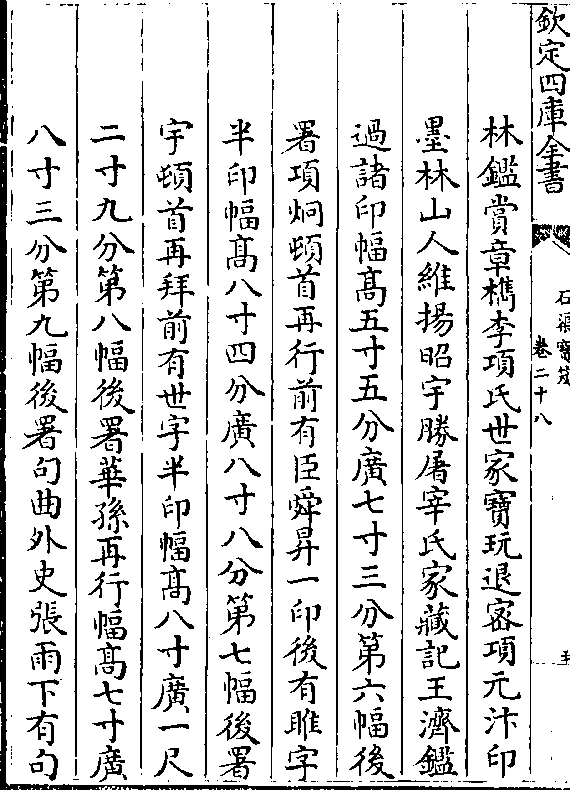 欽定四庫全書
石渠寶笈
卷二十八
林鑑賞章檇李項氏世家寶玩退密項元汴印
墨林山人維揚昭宇勝屠宰氏家藏記王濟鑑
過諸印幅髙五寸五分廣七寸三分第六幅後
署項炯頓首再行前有臣舜昇一印後有睢字
半印幅髙八寸四分廣八寸八分第七幅後署
宇頓首再拜前有世字半印幅髙八寸廣一尺
二寸九分第八幅後署華孫再行幅髙七寸廣
八寸三分第九幅後署句曲外史張雨下有句